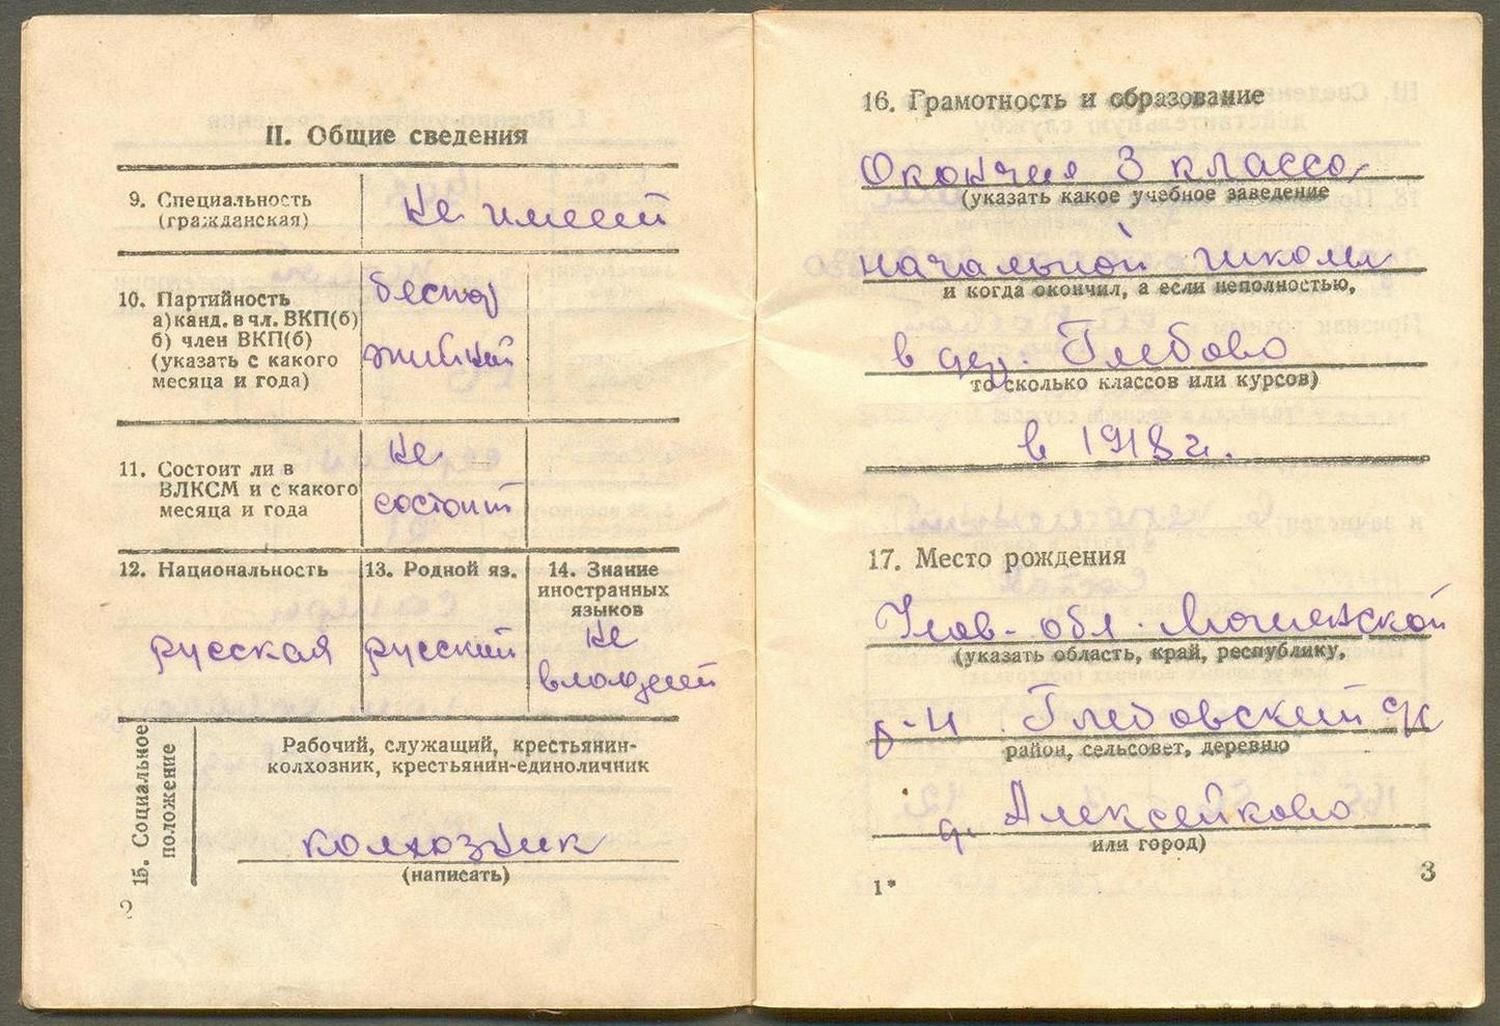 II. Общие сведения
9. Специальность
(гражданская)
не имеет
10. Партийность
а) канд. в чл. ВКП(б)
б) член ВКП(б)
(указать с какого
месяца и года)
беспар
тийный
11. Состоит ли в
ВЛКСМ и с какого
месяца и года
не
состоит
12. Национальность
русская
13. Родной яз.
русский
14. Знание
иностранных
языков
не
владеет
15. Социальное
положение
Рабочий, служащий, крестьянин-
колхозник, крестьянин-единоличник
колхозник
(написать)
2
16. Грамотность и образование
Окончил 3 класса
(указать какое учебное заведение
начальной школы
и когда окончил, а если неполностью,
в дер. Глебово
то сколько классов или курсов)
в 1918 г.
17. Место рождения
обл. Мошенской
(указать область, край, республику,
р-н Глебовский с/с
район, сельсовет, деревню
д. Алексейково
или город)
1*
3